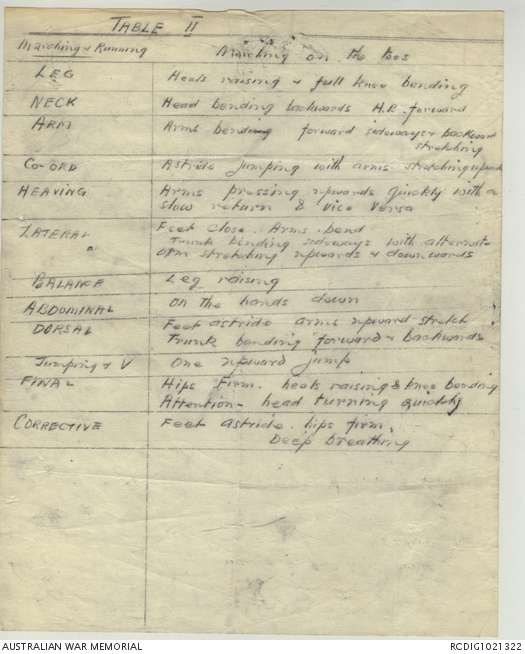 TABLE II
Marching & Running Marching on the toes
LEG Heels raising & full knee bending
NECK Head bending backwards H.B. forward
ARM Arms bending forward sideways & backward
stretching
CO-ORD Astride jumping with arms stretching upwards
HEAVING Arms pressing upwards quickly with a
slow return & vice versa
LATERAL Feet close. Arms bend
Trunk bending sideways with alternate
arm stretching upwards & downwards
BALANCE Leg raising
ABDOMINAL On the hands down
DORSAL Feet astride arms upward stretch
Trunk bending forward & backwards
Jumping & V One upward jump
FINAL Hips Firm. heels raising & knee bending
Attention - head turning quickly
CORRECTIVE Feet astride. hips firm,
Deep breathing
AUSTRALIAN WAR MEMORIAL RCDIG1021322